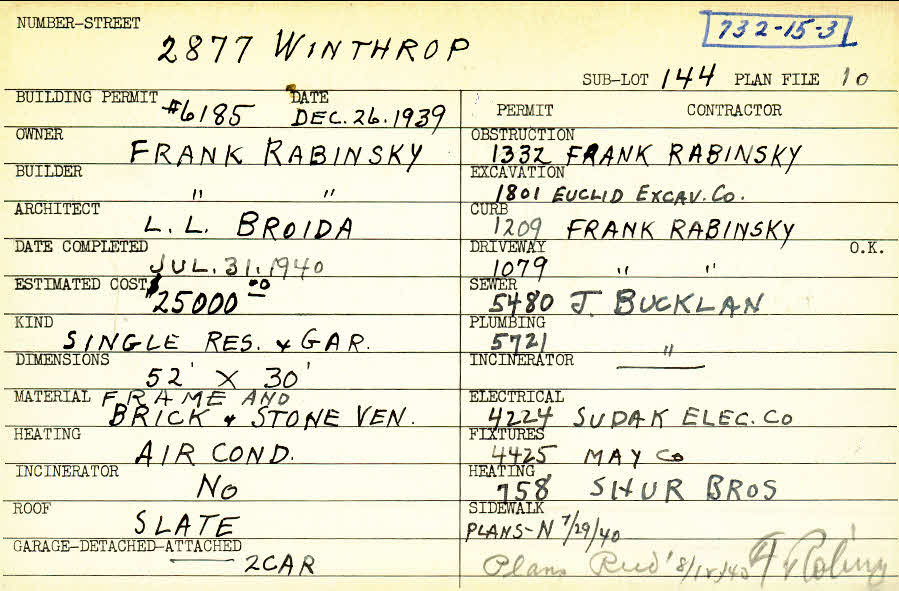 NUMBER-STREET
2877 WINTHROP
732-15-3
SUB-LOT 144 PLAN FILE 10
BUILDING PERMIT #6185 DATE DEC. 26. 1939
OWNER FRANK RABINSKY
BUILDER " "
ARCHITECT L. L. BROIDA
DATE COMPLETED JUL. 31. 1940
ESTIMATED COST $25000 00
KIND SINGLE RES. & GAR.
DIMENSIONS 52' X 30'
MATERIAL FRAME AND
BRICK & STONE VEN.
HEATING AIR COND.
INCINERATOR NO
ROOF SLATE
GARAGE-DETACHED-ATTACHED 2CAR
PERMIT CONTRACTOR
OBSTRUCTION
1332 FRANK RABINSKY
EXCAVATION
1801 EUCLID EXCAV. CO.
CURB
1209 FRANK RABINSKY
DRIVEWAY O.K.
1079 " "
SEWER
5480 J. BUCKLAN
PLUMBING
5721 "
INCINERATOR
ELECTRICAL
4224 SUDAK ELEC. CO
FIXTURES
4425 MAY CO
HEATING
758 SHUR BROS
SIDEWALK
PLANS-N 7/29/40
Plans Rec'd